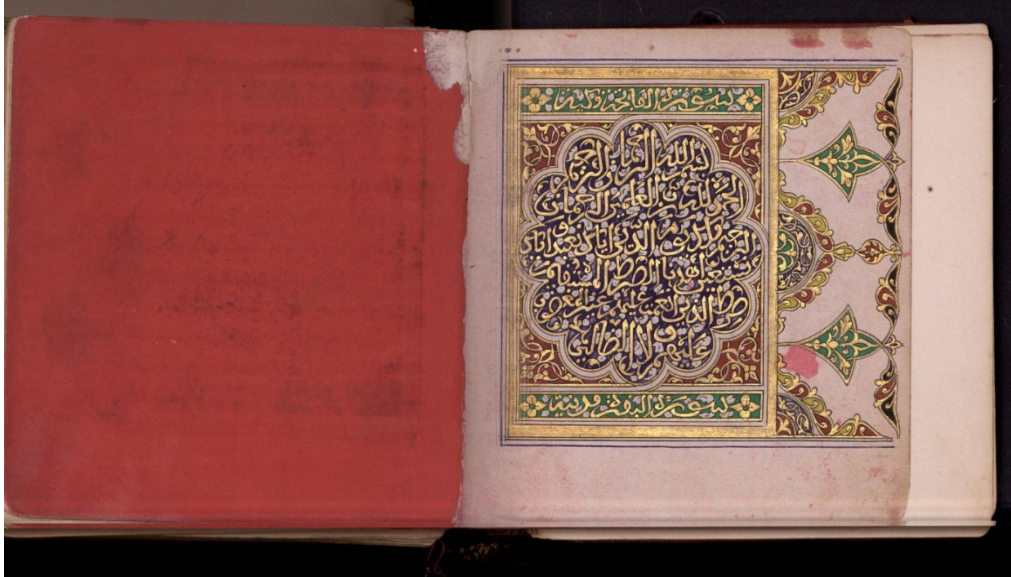 سورة الفاتحة مكية
بسم الله الرحمان الرحيم
الحمد لله رب العالمين الرحمان
الرحيم ملك يوم الدين اياك نعبد و اياك
نستعين اهدنا الصراط المستقيم
صراط الذين انعمت عليهم غير المغضوب
عليهم ولا الضالين
سورة البقرة مدنية